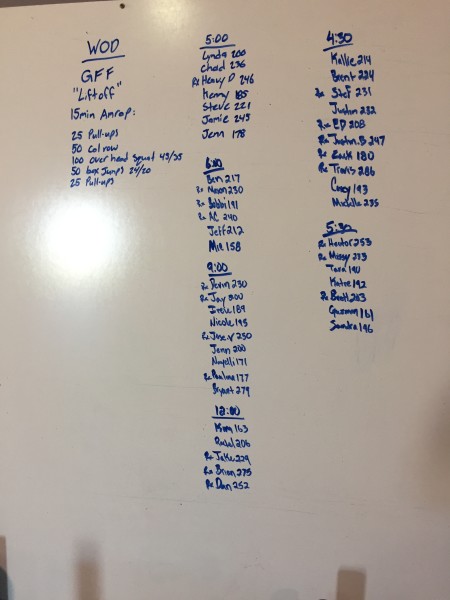 WOD
GFF
"Liftoff"
15min Amrap:
25 Pull-ups
50 Cal row
100 over head squat 45/35
50 box jumps 24/20
25 Pull-ups
5:00
Lynda 200
Chad 236
Rx Heavy D 246
Henny 185
Steve 221
Jamie 245
Jenn 178
6:00
Ben 217
Rx Mason 230
Rx Bobbi 191
Rx AC 240
Jeff 212
Mie 158
9:00
Rx Devin 230
Rx Jay 300
189
Nicole 195
Rx 250
Jenn 200
171
Rx Paulina 177
Bryant 279
12:00
King 163
206
Rx Jake 229
Rx Brian 275
Rx Dan 252
4:30
Kallie 214
Brent 224
Rx Stef 231
Justin 232
Rx ED 208
Rx Justin B 247
Rx Zack 180
Rx Travis 286
Corey 193
Michelle 235
5:30
Rx Hector 253
Rx Missy 273
Tara 190
Katie 192
Rx Brett 263
Guzman 161
Sandra 196